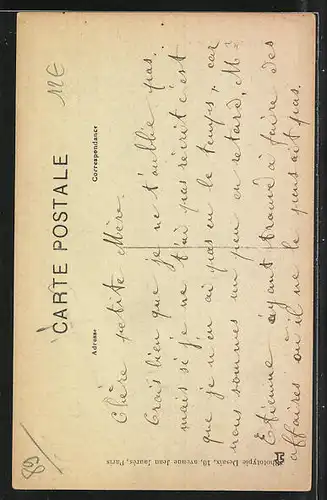 CARTE POSTALE
Correspondance
Adresse
Chère petite Mère.
Crois bien que je ne t'oublie pas.
mais si je ne t'ai pas récrit c'est
que je n'en ai pas eu le temps, car
nous sommes un peu en retard, Mr
Etienne ayant trouvé à faire des
affaires où il ne le pensait pas.
Phototypie Desaix, 10, avenue Jean Jaurès, Paris